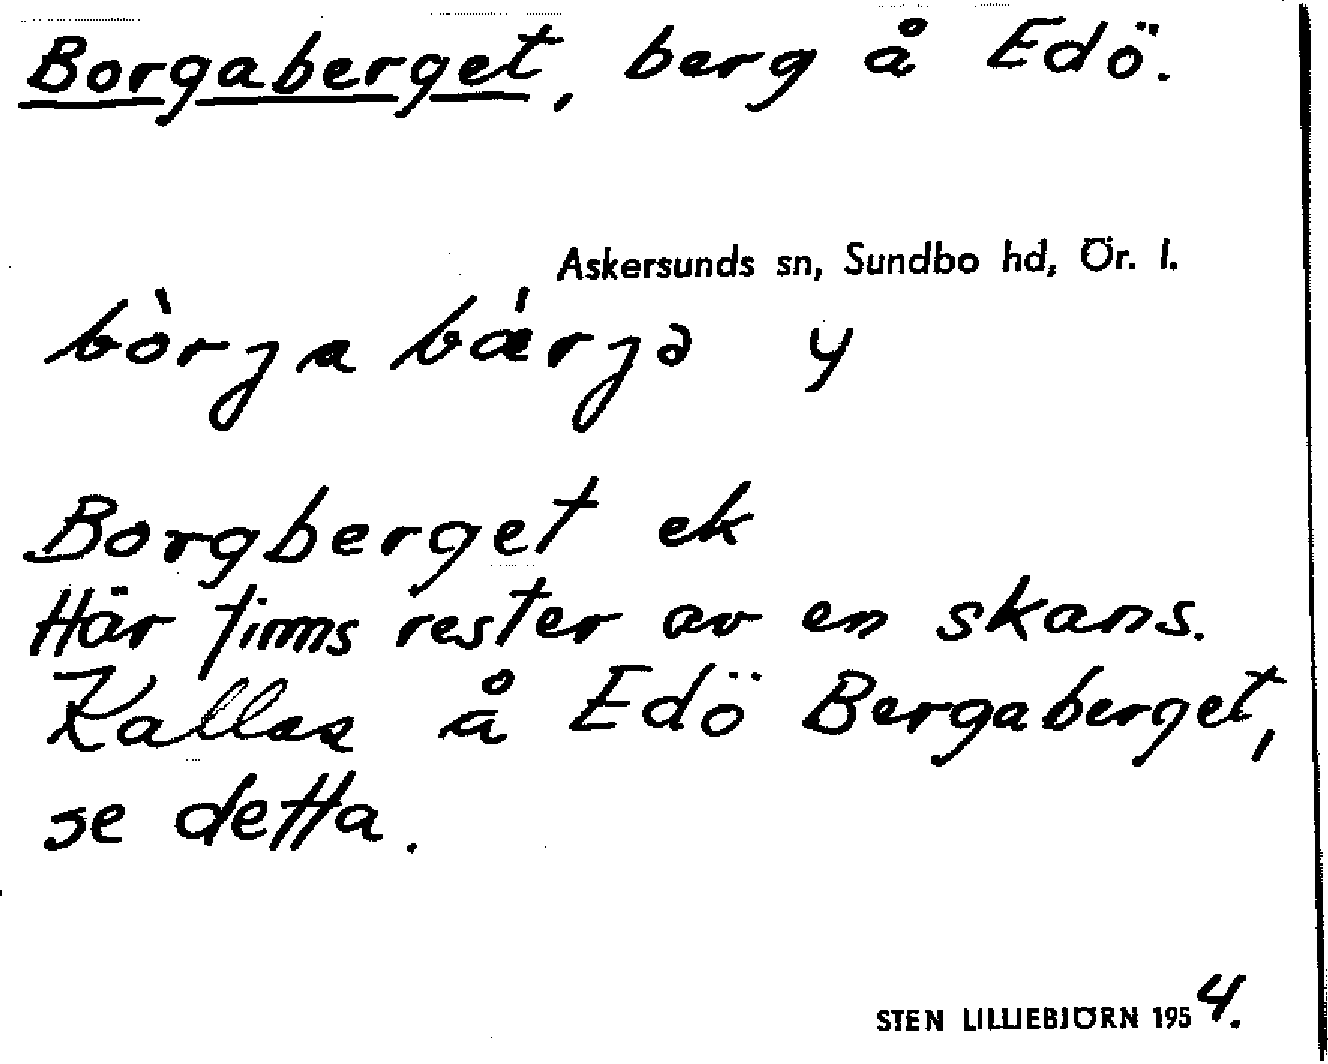 Borgaberget, berg å Edö.
Askersunds sn, Sundbo hd, Ör. l.
bòrja bǽrjə y
Borgberget ek
Här finns rester av en skans.
Kallas å Edö Bergaberget,
se detta.
STEN LILLIEBJÖRN 1954.